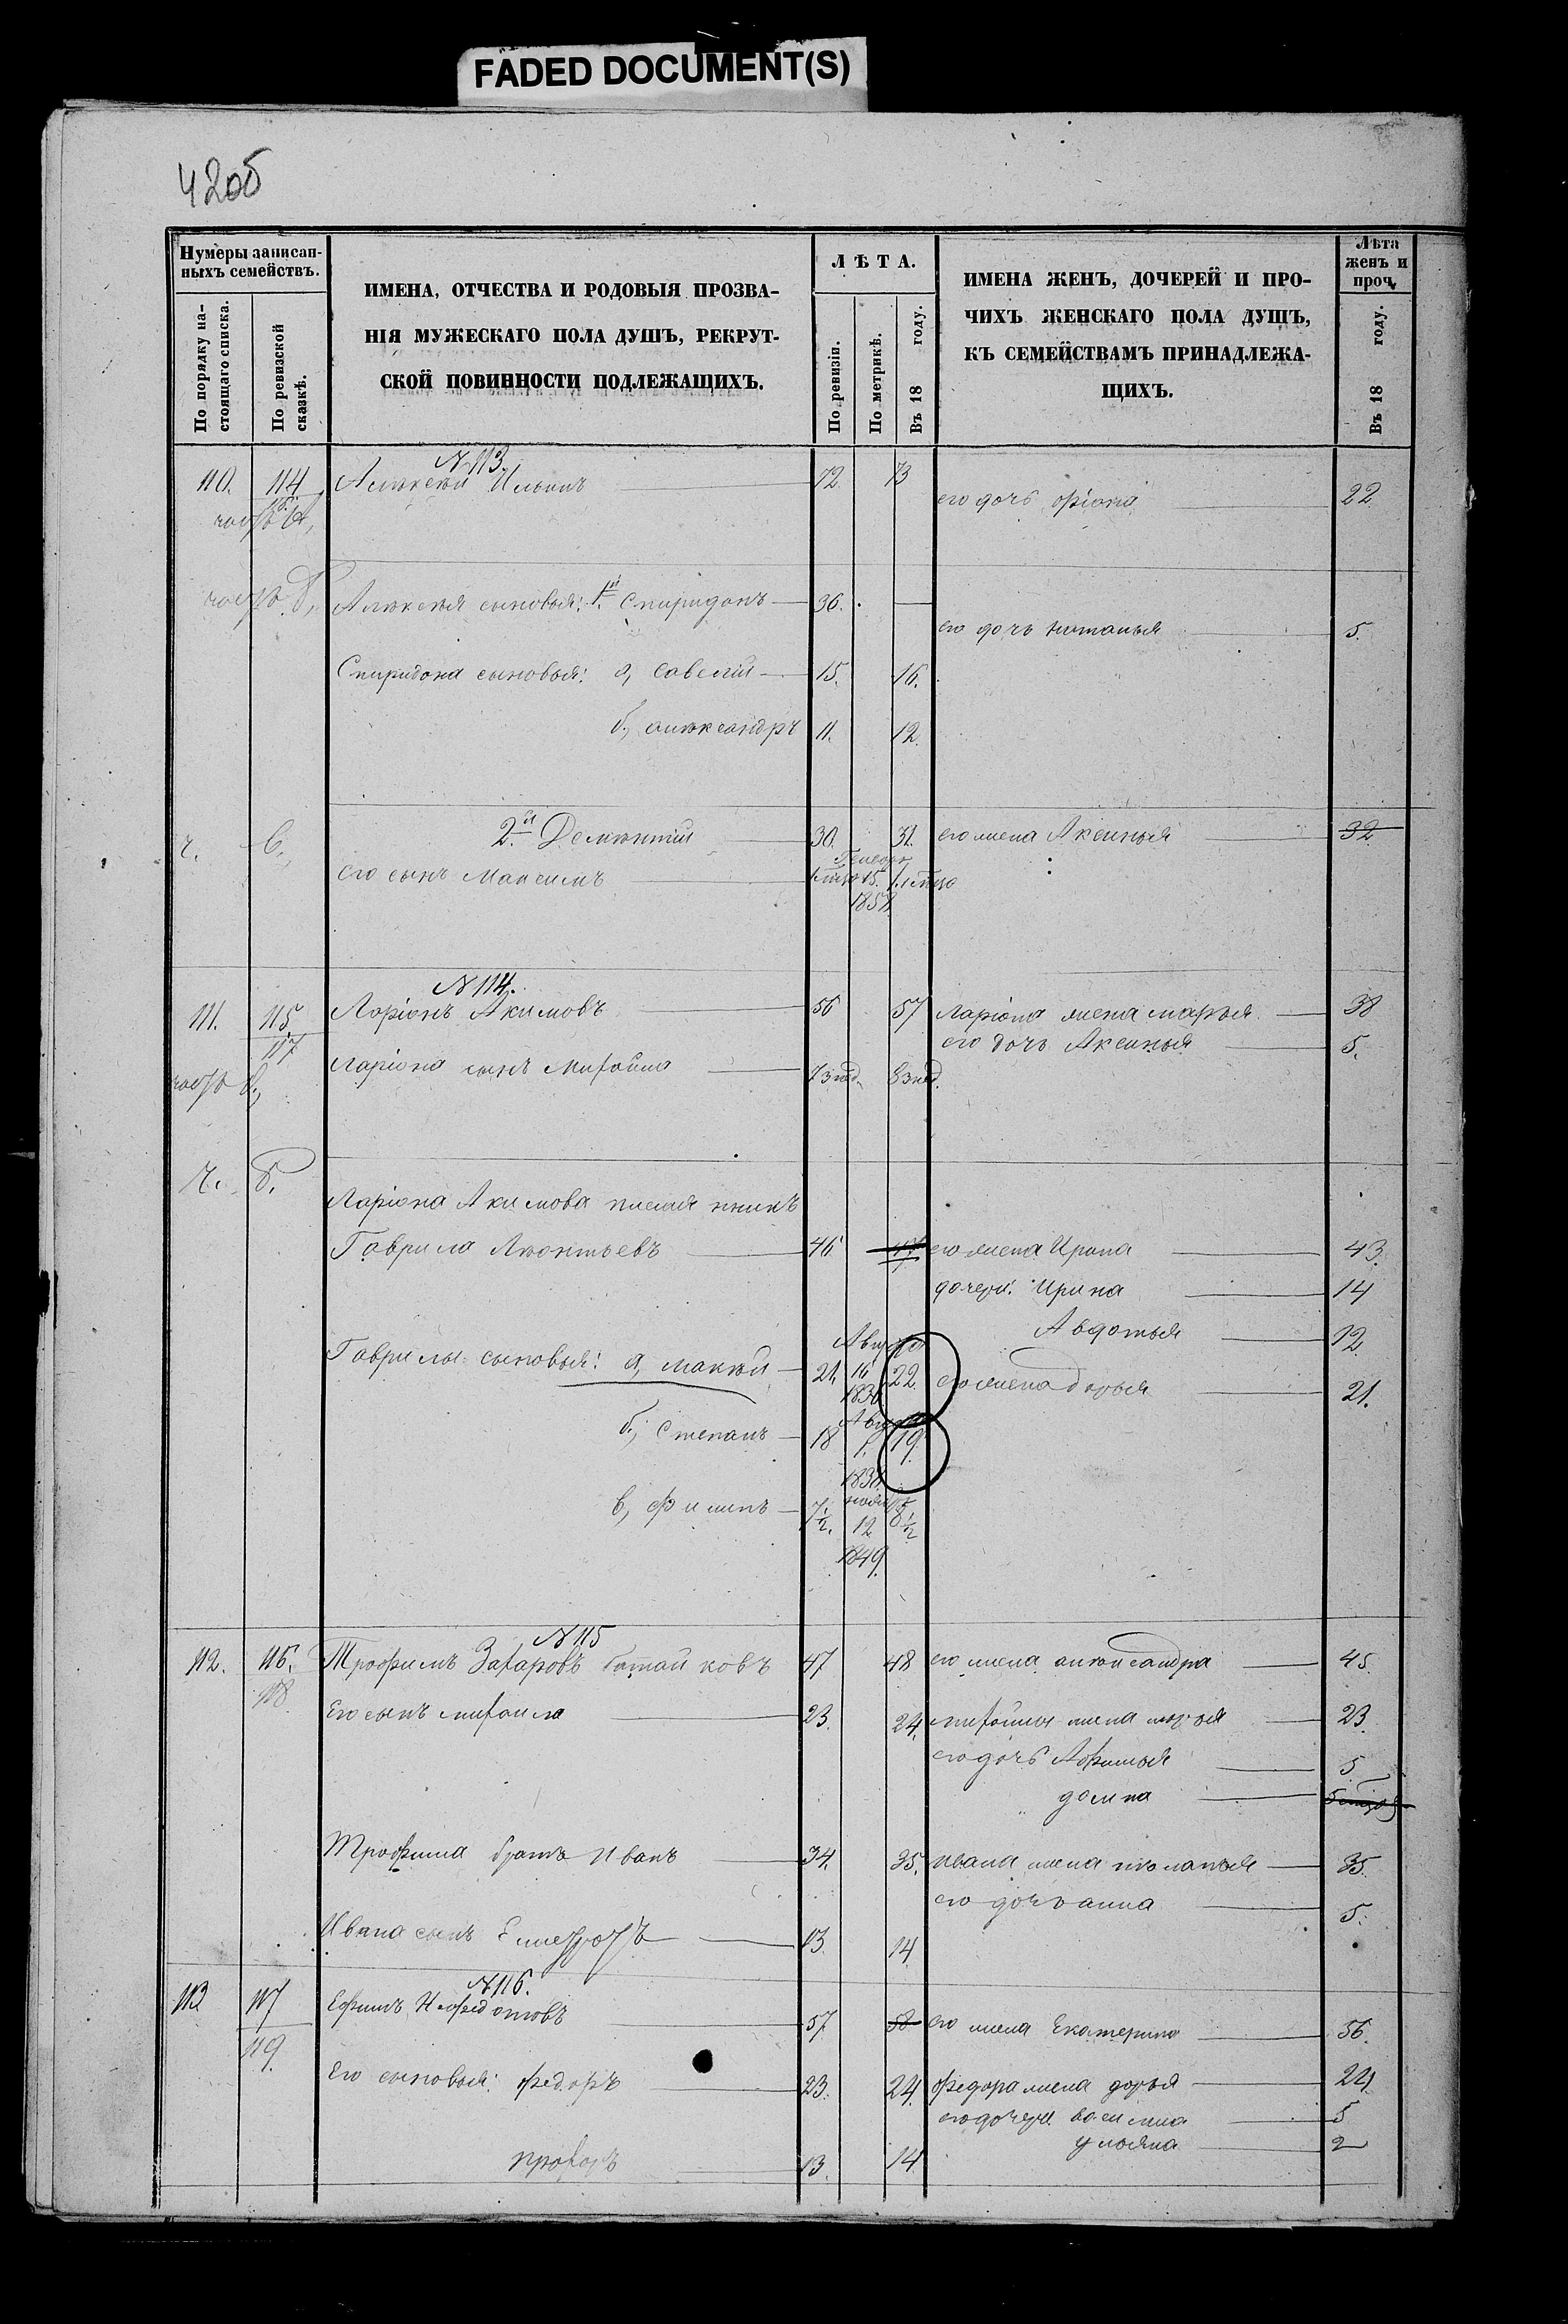 FADED DOCUMENT(S)
42об
Нумеры записан-
ныхъ семействъ.
По порядку на-
стоящаго списка.
По ревизской
сказкѣ.
ИМЕНА, ОТЧЕСТВА И РОДОВЫЯ ПРОЗВА-
НІЯ МУЖЕСКАГО ПОЛА ДУШЪ, РЕКРУТ-
СКОЙ ПОВИННОСТИ ПОДЛЕЖАЩИХЪ.
ЛѢТА.
По ревизіи.
По метрикѣ.
Въ 18 году.
ИМЕНА ЖЕНЪ, ДОЧЕРЕЙ И ПРО-
ЧИХЪ ЖЕНСКАГО ПОЛА ДУШЪ,
КЪ СЕМЕЙСТВАМЪ ПРИНАДЛЕЖА-
ЩИХЪ.
Лѣта
женъ и
проч.
Въ 18 году.
N 113.
110. 114 Алексѣй Ильинъ 72. 73
его дочь 22.
часть а,
часть б, Алексѣя сыновья: 1й Спиридонъ 36.
его дочь наталья 5.
Спиридона сыновья: а, савелій 15. 16.
б, александръ 11. 12.
ч. в, 2й Дементій 30. 31. его жена Аксинья 32
его сынъ Максимъ 15. 1858
N 114.
111. 115. Ларіонъ Акимовъ 56 57 ларіона жена марья 38
117
его дочь Аксинья 5.
часть а, ларіона сынъ Михайла
ч. б.
Ларіона Акимова племянникъ
Гаврила Леонтьевъ 46 47 его жена Ирина 43.
дочери: Ирина 14
Авдотья 12.
Гаврилы сыновья: а, макѣй 21. Августа 16 1836 22. его жена дарья 21.
б, степанъ 18 Августа 1. 1839 19.
в, филипъ 7 1/2. ноя 12 1849. 8 1/2
N 115
112. 116. Трофимъ Захаровъ 47 48 его жена александра 45.
118
Его сынъ михаила 23. 24. михайлы жена марья 23.
его дочь Афимья 5
домна
Трофима братъ Иванъ 34. 35. ивана жена пелагея 35.
его дочь анна 5.
Ивана сынъ 13. 14
N 116.
113 117 Ефимъ Нефедотовъ 57. 58 его жена Екатерина 56.
119.
Его сыновья: федоръ 23. 24. федора жена дарья 24
его дочери: василиса 5
ульяна 2
прохоръ 13. 14